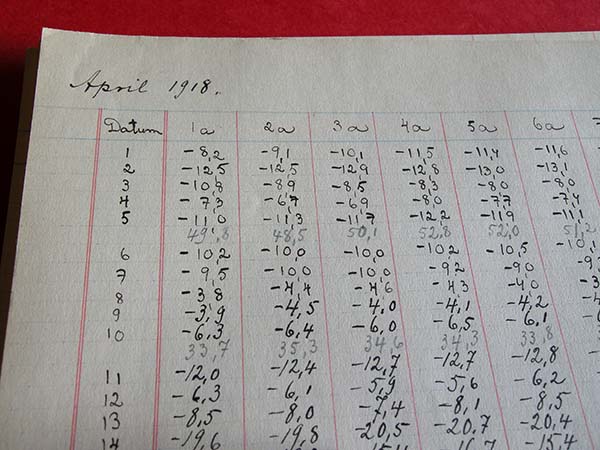 April 1918.
Datum 1a 2a 3a 4a 5a 6a
1 -8,2 -9,1 -10,1 -11,5 -11,4 -11,6
2 -12,5 -12,5 -12,9 -12,8 -13,0 -13,1
3 -10,8 -8,9 -8,5 -8,3 -8,0 -8,0
4 -7,3 -6,7 -6,9 -8,0 -7,7 -7,4
5 -11,0 -11,3 -11,7 -12,2 -11,9 -11,1
49,8 48,5 50,1 52,8 52,0 51,2
6 -10,2 -10,0 -10,0 -10,2 -10,5 -10,1
7 -9,5 -10,0 -10,0 -9,2 -9,0
8 -3,8 -4,4 -4,6 -4,3 -4,0
9 -3,9 -4,5 -4,0 -4,1 -4,2
10 -6,3 -6,4 -6,0 -6,5 -6,1
33,7 35,3 34,6 34,3 33,8
11 -12,0 -12,4 -12,7 -12,7 -12,8
12 -6,3 -6,1 -5,9 -5,6 -6,2
13 -8,5 -8,0 -7,4 -8,1 -8,5
14 -19,6 -19,8 -20,5 -20,7 -20,4
-15,4